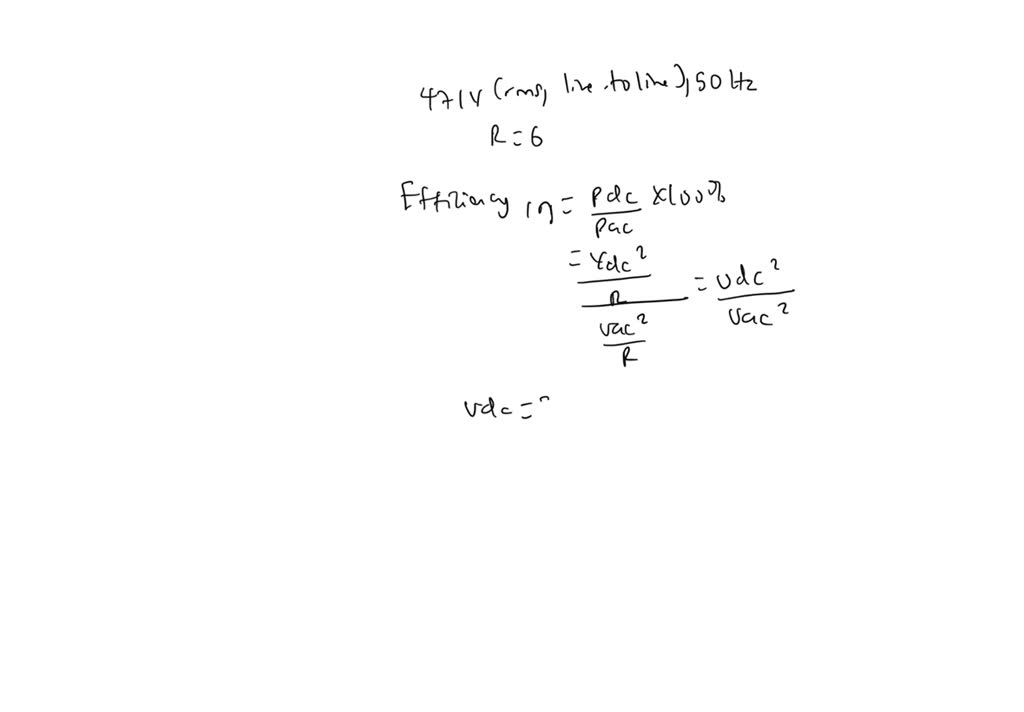 471V (rms, line to line), 50 Hz
R = 6
Efficiency, η = Pdc / Pac × 100%
= Vdc² / R / Vac² / R = Vdc² / Vac²
Vdc =